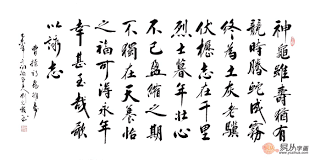 神龜雖壽猶有
競時騰蛇成霧
終為土灰老驥
伏櫪志在千里
烈士暮年壯心
不已盈縮之期
不獨在天養怡
之福可得永年
幸甚至哉歌
以詠志
曹操詩龜雖壽